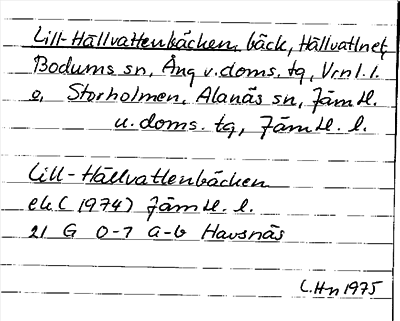 Lill-Hällvattenbäcken, bäck, Hällvattnet,
Bodums sn, Ång v. doms. tg, Vrnl. l.
o, Storholmen, Alanäs sn, Jämtl.
u. doms. tg, Jämtl. l.
Lill-Hällvattenbäcken
ek (1974) Jämtl. l.
21 G 0-1 a-b Havsnäs
C. Hn 1975